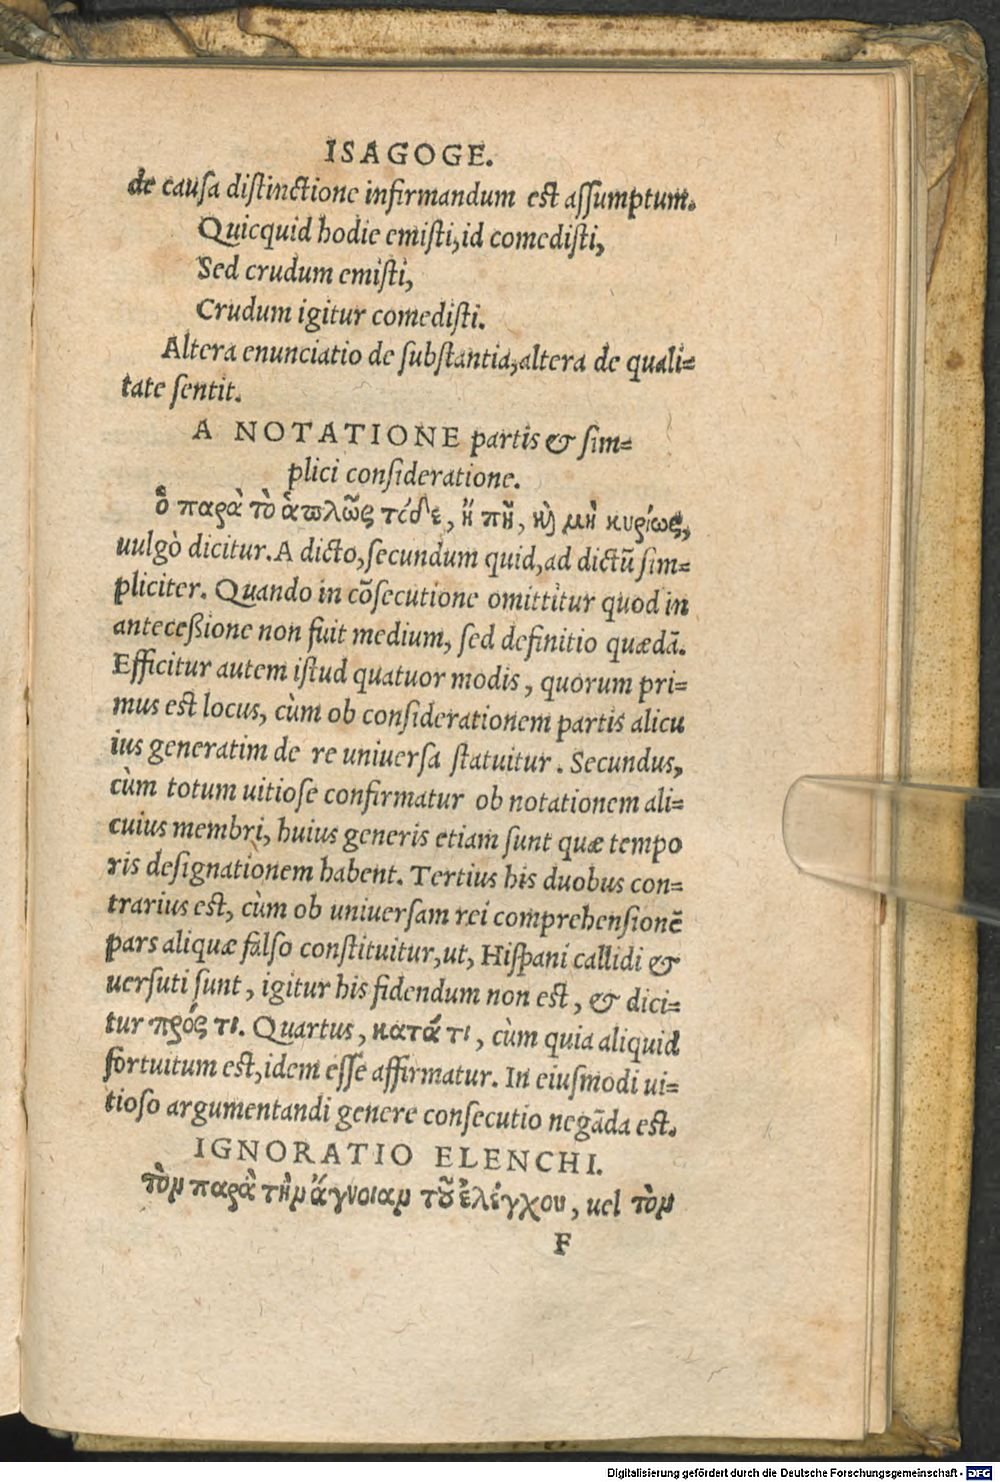 ISAGOGE.
de causa distinctione infirmandum est assumptum.
Quicquid hodie emisti, id comedisti,
Sed crudum emisti,
Crudum igitur comedisti.
Altera enunciatio de substantia, altera de quali=
tate sentit.
A NOTATIONE partis & sim=
plici consideratione.
ὁ παρὰ τὸ ἁπλῶς τόδε, ἢ πῆ, καὶ μὴ κυρίως,
uulgò dicitur. A dicto, secundum quid, ad dictũ sim=
pliciter. Quando in cõsecutione omittitur quod in
anteceßione non fuit medium, sed definitio quædã.
Efficitur autem istud quatuor modis, quorum pri=
mus est locus, cùm ob considerationem partis alicu
ius generatim de re uniuersa statuitur. Secundus,
cùm totum uitiose confirmatur ob notationem ali=
cuius membri, huius generis etiam sunt quæ tempo
ris designationem habent. Tertius his duobus con=
trarius est, cùm ob uniuersam rei comprehensionẽ
pars aliquæ falso constituitur, ut, Hispani callidi &
uersuti sunt, igitur his fidendum non est, & dici=
tur πρός τι. Quartus, κατά τι, cùm quia aliquid
fortuitum est, idem esse affirmatur. In eiusmodi ui=
tioso argumentandi genere consecutio negãda est.
IGNORATIO ELENCHI.
τὸν παρὰ τὴν ἄγνοιαν τοῦ ἐλέγχου, uel τὸν
F
Digitalisierung gefördert durch die Deutsche Forschungsgemeinschaft - DFG